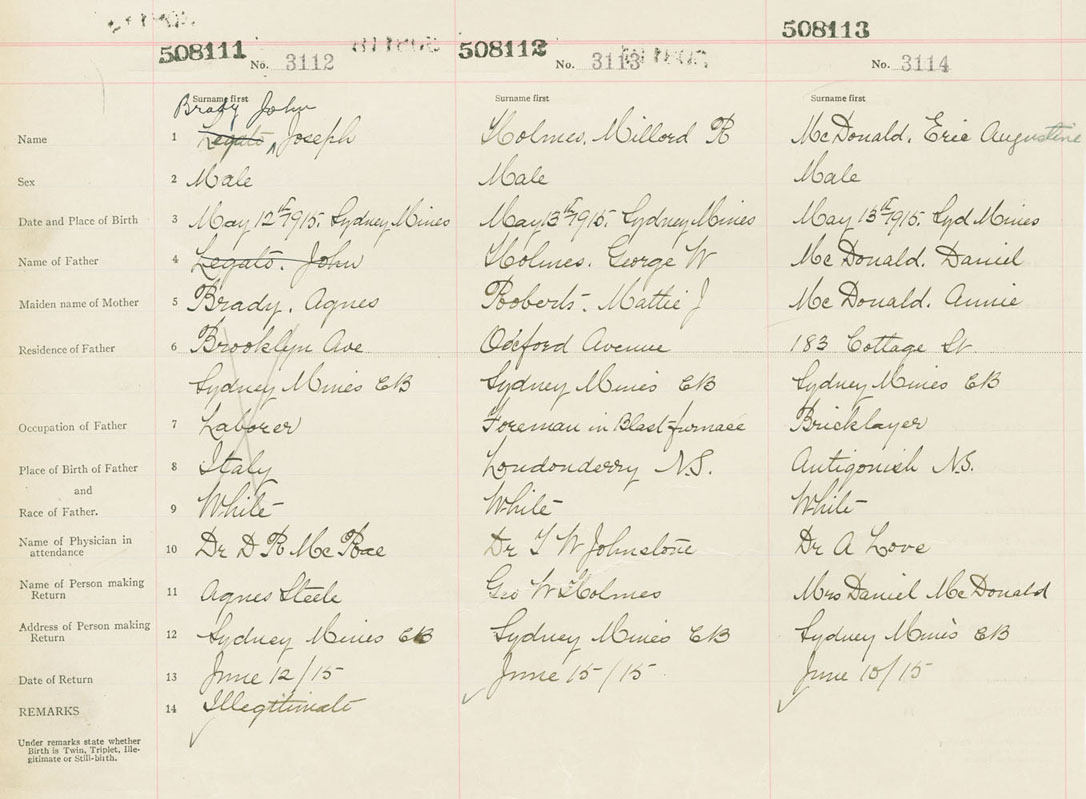 508111 508112 508113
No. 3112 No. 3113 No. 3114
Surname first Surname first Surname first
Brady John
Name 1 Legato, Joseph Holmes, Millord R McDonald, Eric Augustine
Sex 2 Male Male Male
Date and Place of Birth 3 May 12th 1915. Sydney Mines May 13th 1915. Sydney Mines May 13th 1915. Syd Mines
Name of Father 4 Legato. John Holmes. George W McDonald. Daniel
Maiden name of Mother 5 Brady, Agnes Roberts. Mattie J McDonald. Annie
Residence of Father 6 Brooklyn Ave Oxford Avenue 183 Cottage St
Sydney Mines CB Sydney Mines CB Sydney Mines CB
Occupation of Father 7 Laborer Foreman in Blast furnace Bricklayer
Place of Birth of Father 8 Italy Londonderry N.S. Antigonish N.S.
and
Race of Father. 9 White White White
Name of Physician in
attendance 10 Dr D R McRae Dr T W Johnstone Dr A Love
Name of Person making
Return 11 Agnes Steele Geo W Holmes Mrs Daniel McDonald
Address of Person making
Return 12 Sydney Mines CB Sydney Mines CB Sydney Mines CB
Date of Return 13 June 12/15 June 15/15 June 10/15
REMARKS 14 Illegitimate
Under remarks state whether
Birth is Twin, Triplet, Ille-
gitimate or Still-birth.